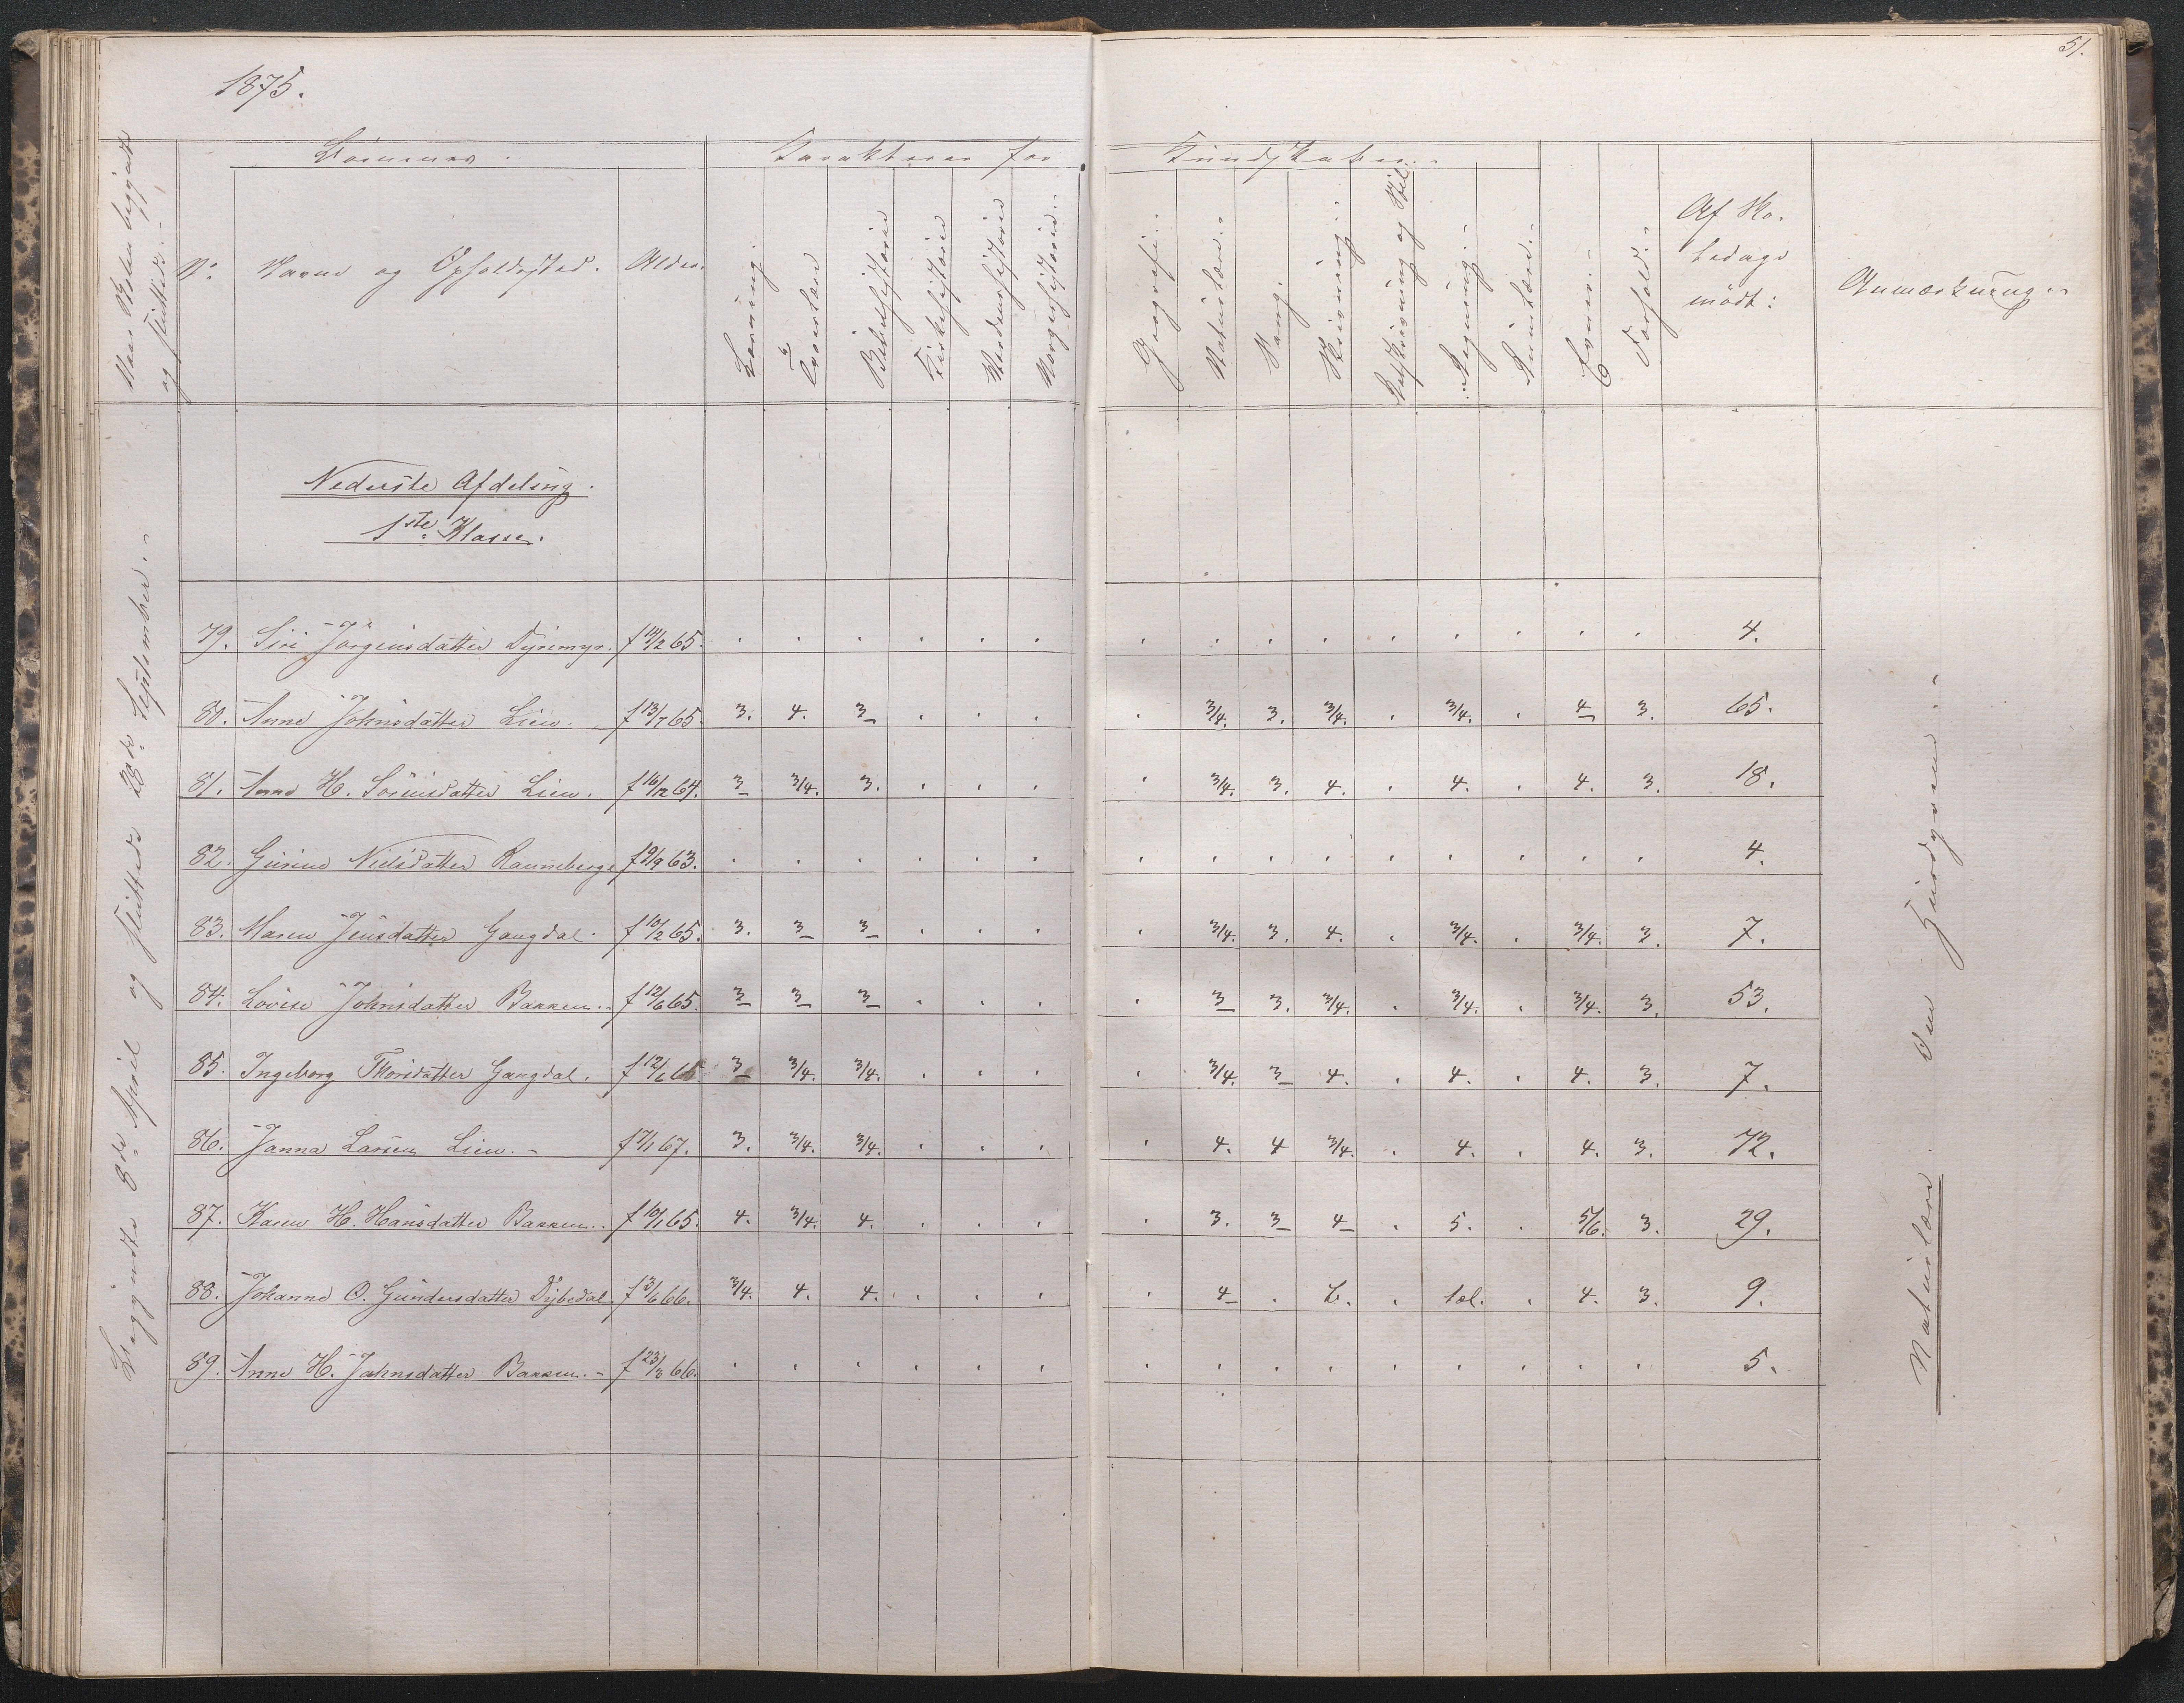 1875.
51.
Naar Skolen begyndte
og sluttede.
Börnenes.
Karakterer for
Kundskaber.
No.
Navne og Opholdssted.
Alder.
Læsning.
Troeslære
Bibelhistorie
Kirkehistorie
Verdenshistorie
Norgeshistorie.
Geografi.
Naturlære.
Sang.
Skrivning.
Retskrivning og Stil
Regning.
Evner.
Forhold.
Af Sko-
ledage
mödt:
Anmærkning
Nederste Afdeling.
1ste Klasse.
Begyndte 8de April og sluttede 28de September.
79. Siri Jörgensdatter Dyremyr. f 14/2 65. 4.
80. Anne Johnsdatter Lien. f 13/7 65. 3. 4. 3 3/4. 3. 3/4. 3/4. 4 3. 65.
81. Anne H. Sörensdatter Lien. f 16/12 64. 3 3/4. 3. 3/4. 3. 4. 4. 4. 3. 18.
82. Gurine Nielsdatter Ranneberg f 9/9 63. 4.
83. Maren Jensdatter Gangdal. f 10/2 65. 3. 3 3 3/4. 3. 4. 3/4. 3/4. 3. 7.
84. Lovise Johnsdatter Bakken. f 12/6 65. 3 3 3 3 3. 3/4. 3/4. 3/4. 3. 53.
85. Ingeborg Thorsdatter Gangdal. f 12/6 3 3/4. 3/4. 3/4. 3 4. 4. 4. 3. 7.
86. Janna Larsen Lien. f 7/1 67. 3. 3/4. 3/4. 4. 4 3/4. 4. 4. 3. 72.
87. Karen H. Hansdatter Bakken. f 10/1 65. 4. 3/4. 4. 3. 3 4 5. 5/6. 3. 29.
88. Johanne O. Gundersdatter Dybedal f 3/6 66. 3/4. 4. 4. 4 . tæl. 4. 3. 9.
89. Anne H. Johnsdatter Bakken. f 23/3 66. 5.
Naturlære. Om